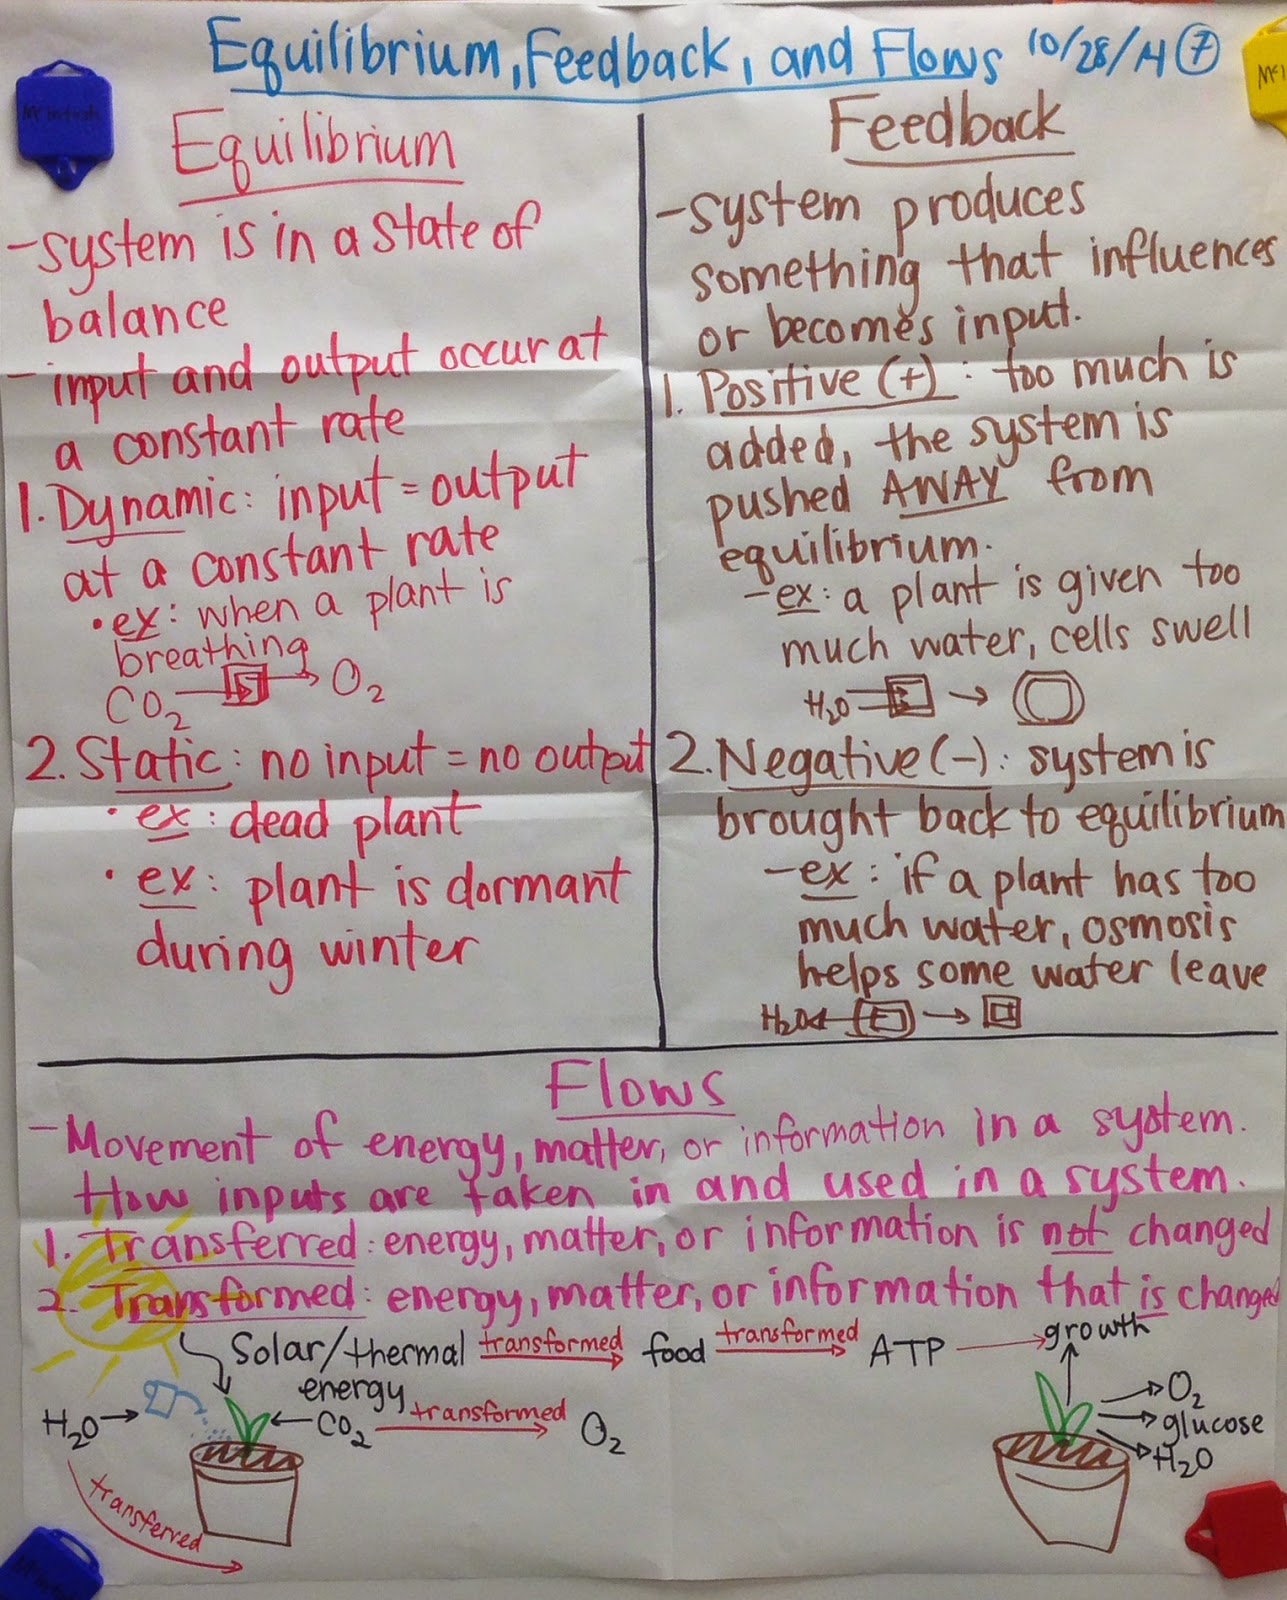 Equilibrium, Feedback, and Flows 10/28/14 7
Equilibrium
-system is in a state of
balance
-input and output occur at
a constant rate
1. Dynamic: input = output
at a constant rate
• ex: when a plant is
breathing
CO2 → → O2
2. Static: no input = no output
• ex: dead plant
• ex: plant is dormant
during winter
Feedback
-system produces
something that influences
or becomes input.
1. Positive (+): too much is
added, the system is
pushed AWAY from
equilibrium.
-ex: a plant is given too
much water, cells swell
H2O → →
2. Negative (-): system is
brought back to equilibrium
-ex: if a plant has too
much water, osmosis
helps some water leave
H2O ← →
Flows
-Movement of energy, matter, or information in a system.
How inputs are taken in and used in a system.
1. Transferred: energy, matter, or information is not changed
2. Transformed: energy, matter, or information that is changed
Solar/thermal transformed → food transformed → ATP → growth
energy
H2O → CO2 transformed → O2
transferred
O2
glucose
H2O
McIntosh